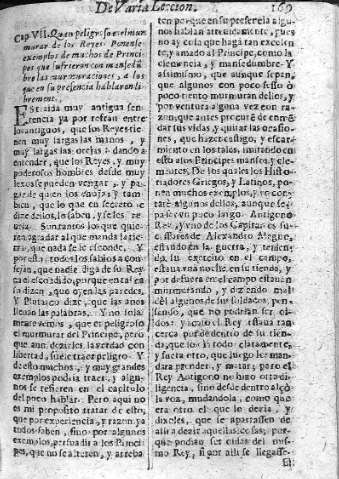 De Varia Leccion. 169
Cap. VII. Quan peligroso es el mur
murar de los Reyes. Ponense
exemplos de muchos de Princi
pes que sufrieron con mansedũ
bre las murmuraciones, à los
que en su presencia hablaron li-
bremente.
ES esta muy antigua sen-
tencia ya por refran entre
los antiguos, que los Reyes tie-
nen muy largas las manos, y
muy largas las orejas: dando a
entender, que los Reyes, y muy
poderosos hombres desde muy
lexos se pueden vengar, y pa-
gar de quien los enoja, y tam-
bien, que lo que en secreto se
dize dellos, lo saben, y se les re-
Son tantos los que quie-
ren agradar al que manda, que
nada se le esconde. Y
por esta, todos los sabios acon-
sejan, que nadie diga de su Rey
en escondido, porque entonces
dizen, que oyen las paredes.
Y Plutarco dize, que las aues
lleuan las palabras. Y no sola
mente vemos, que es peligroso
el murmurar del Principe, pero
que aun dezirles la verdad con
libertad, suele traer peligro. Y
desto muchos, y muy grandes
exemplos podria traer, y algu-
nos se refieren en el capitulo
del poco hablar. Pero aqui no
es mi proposito tratar de esto,
que por experiencia, y razon ya
todos saben, sino por algunos
exemplos, persuadir a los Princi
pes, que no se alteren, y
ten porque en su presencia algu-
nos hablan atreuidamente, pues
no ay cosa que haga tan excelen
te, y amado al Principe, como la
clemencia, y mansedumbre. Y
assimismo, que aunque sepan,
que algunos con poco sesso ò
poco tiento murmuran dellos, y
por ventura alguna vez con ra-
zon, que antes procuren de enmẽ
dar sus vidas, y quitar las ocasio-
nes, que hazer castigo, y escar-
miento en los tales, imitando en
esto a los Principes mansos, y cle-
mentes. De los quales los Histo-
riadores Griegos, y Latinos, po-
nen muchos exemplos, y yo con-
tarè algunos dellos, aunque se
passe con poco largo. Antigono
Rey, y vno de los Capitanes, su-
cessores de Alexandro Magno,
estando en la guerra, y tenien-
do su exercito en el campo,
estaua vna noche en su tienda, y
por defuera en el campo estauan
murmurando, y diziendo mal
del algunos de sus soldados, pen-
sando, que no podrian ser oi-
dos: y como el Rey estaua tan
cerca por de dentro de su tien-
da, que los oia todo claramente,
y fuera otro, que luego les man-
dara prender, y matar, pero el
Rey Antigono no hizo otra di-
ligencia, sino desde dentro alçò
la voz, mudandola, como que
era otro el que lo dezia, y
dixoles, que se apartassen de
alli a dezir aquellas cosas, por-
que podrian ser oidas del mis-
mo Rey, si por alli se llegasse.